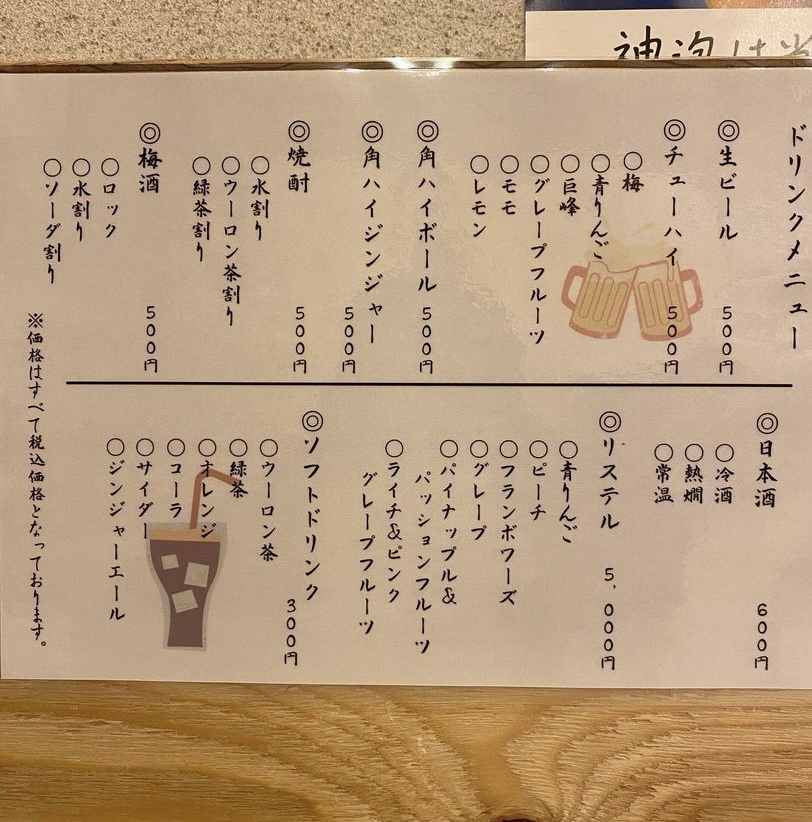 神泡は
ドリンクメニュー
◎生ビール 500円
◎チューハイ 500円
○梅
○青りんご
○巨峰
○グレープフルーツ
○モモ
○レモン
◎角ハイボール 500円
◎角ハイジンジャー 500円
◎焼酎 500円
○水割り
○ウーロン茶割り
○緑茶割り
◎梅酒 500円
○ロック
○水割り
○ソーダ割り
◎日本酒 600円
○冷酒
○熱燗
○常温
◎リステル 5,000円
○青りんご
○ピーチ
○フランボワーズ
○グレープ
○パイナップル&
パッションフルーツ
○ライチ&ピンク
グレープフルーツ
◎ソフトドリンク 300円
○ウーロン茶
○緑茶
○オレンジ
○コーラ
○サイダー
○ジンジャーエール
※価格はすべて税込価格となっております。